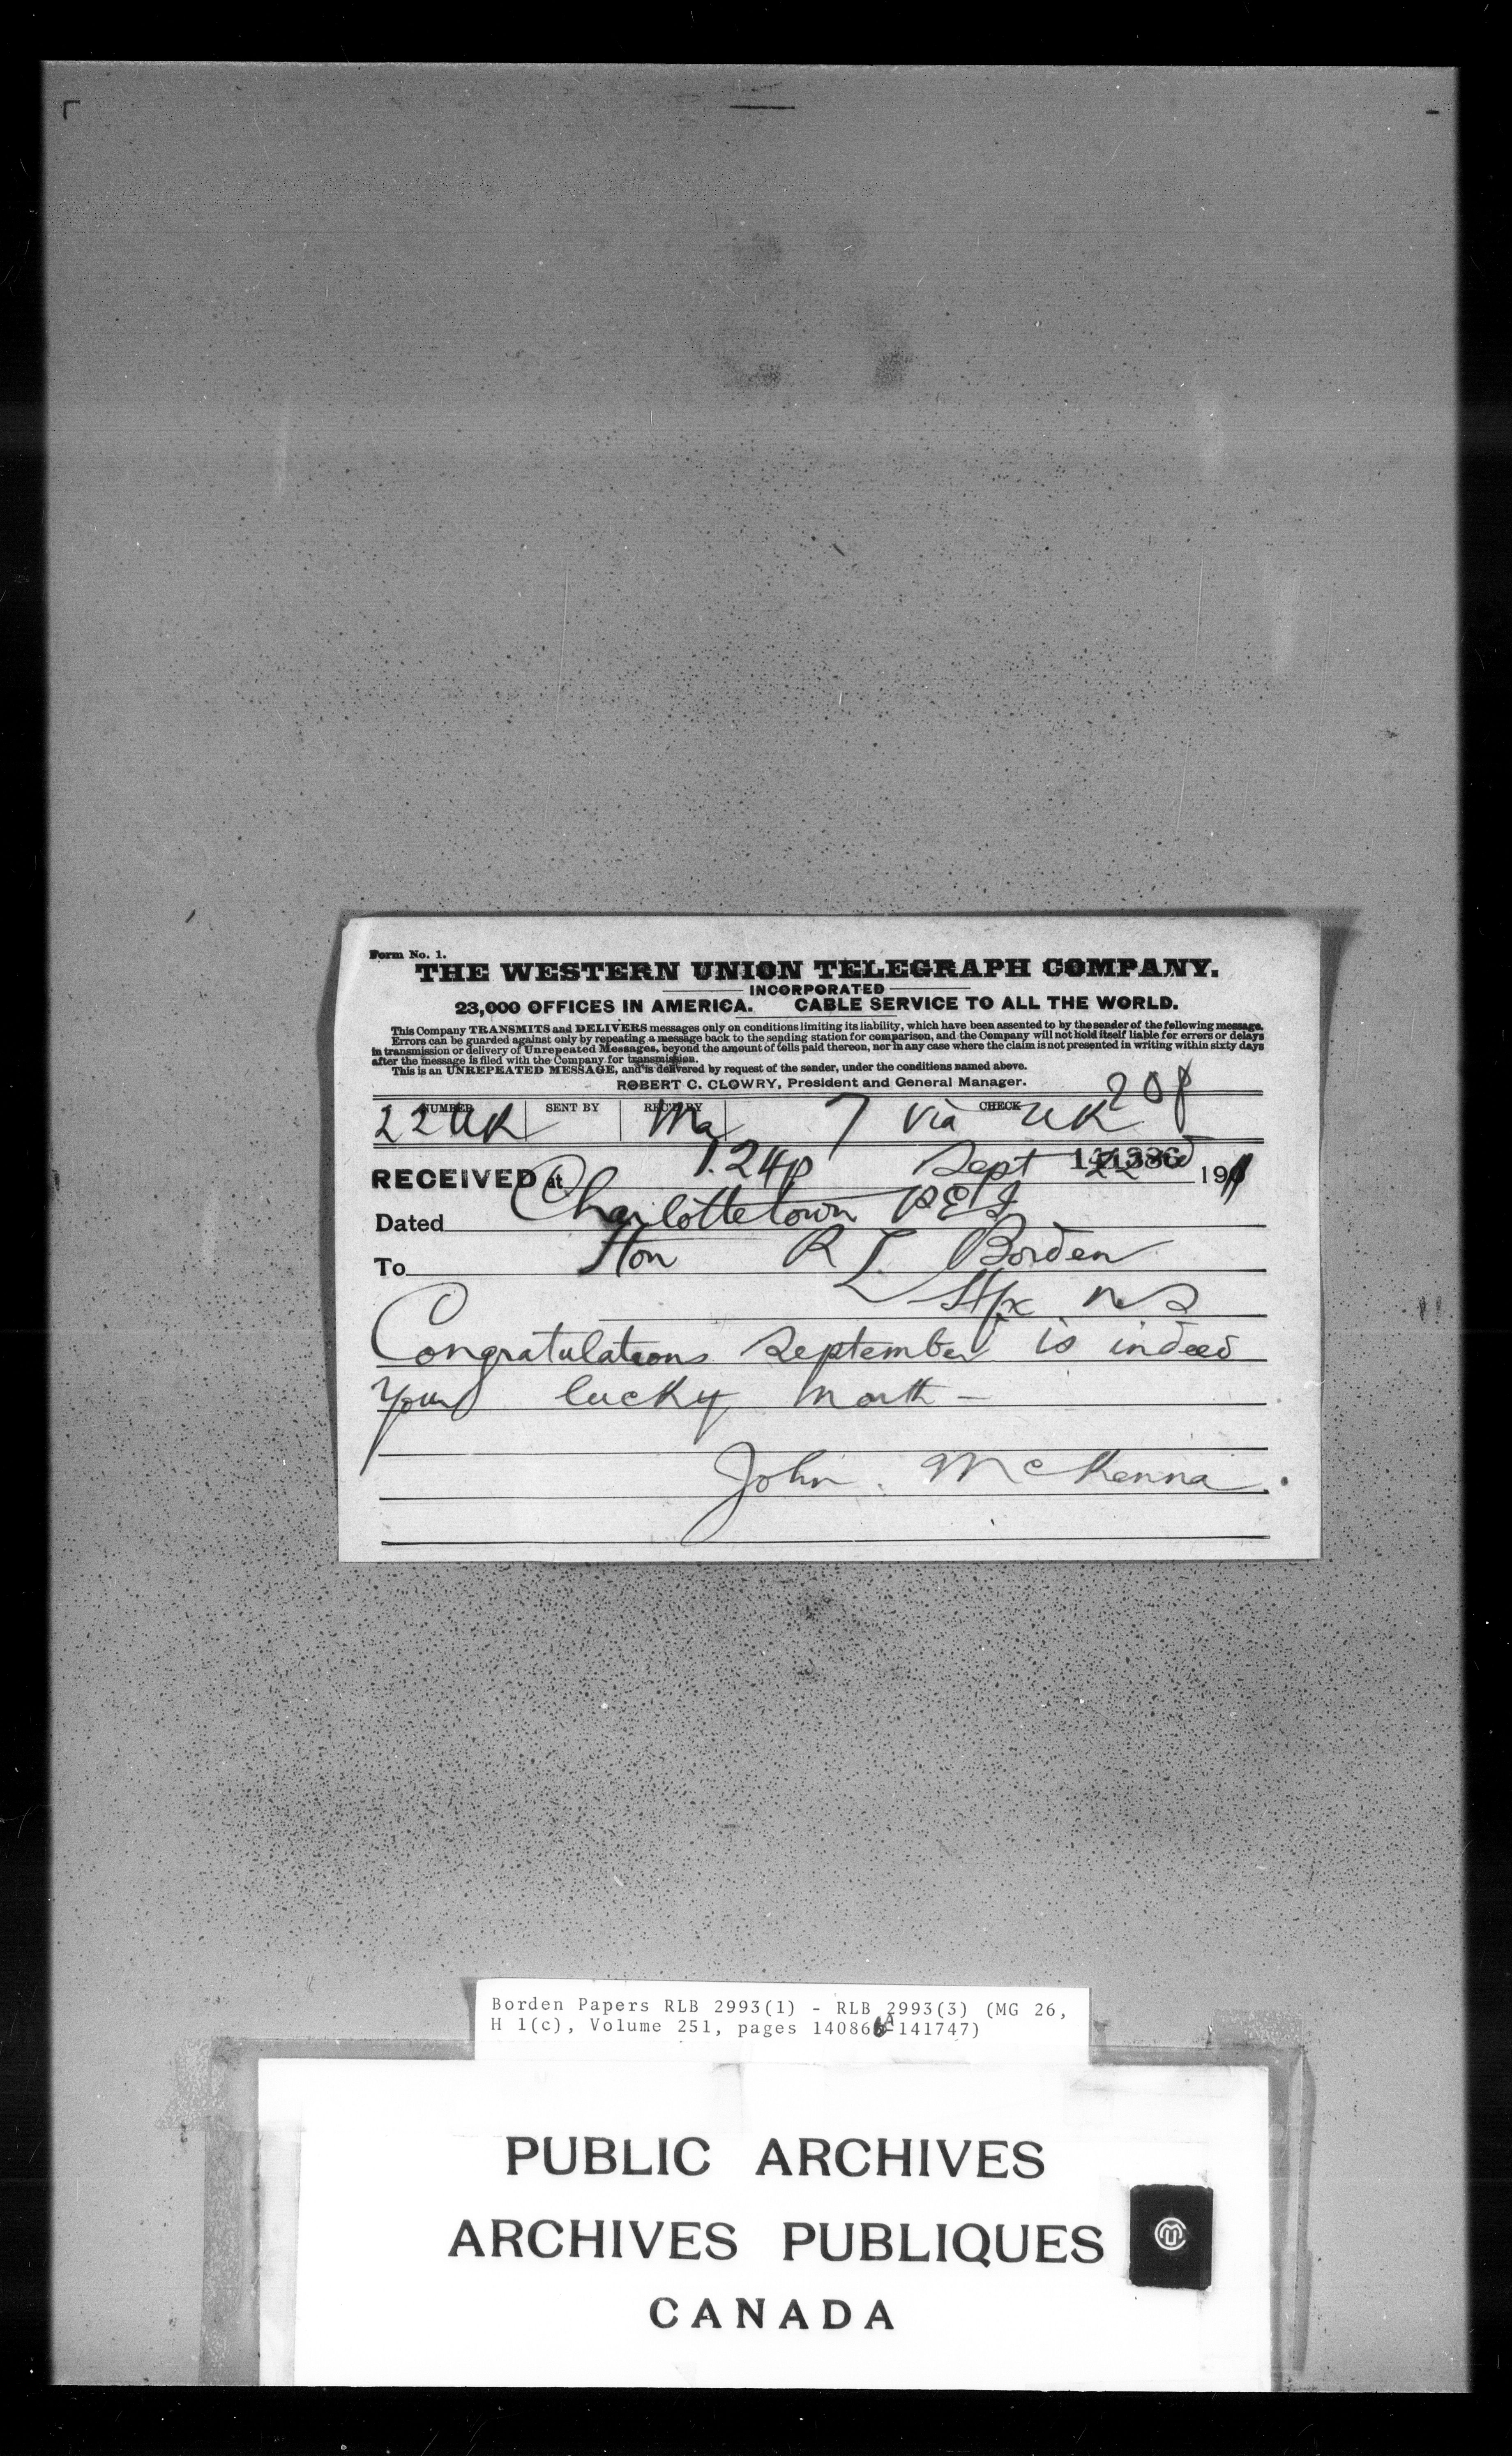 Form No. 1.
THE WESTERN UNION TELEGRAPH COMPANY.
INCORPORATED
23,000 OFFICES IN AMERICA. CABLE SERVICE TO ALL THE WORLD.
This Company TRANSMITS and DELIVERS messages only on conditions limiting its liability, which have been assented to by the sender of the following message.
Errors can be guarded against only by repeating a message back to the sending station for comparison, and the Company will not hold itself liable for errors or delays
in transmission or delivery of Unrepeated Messages, beyond the amount of tolls paid thereon, nor in any case where the claim is not presented in writing within sixty days
after the message is filed with the Company for transmission.
This is an UNREPEATED MESSAGE, and is delivered by request of the sender, under the conditions named above.
ROBERT C. CLOWRY, President and General Manager.
NUMBER SENT BY REC'D BY CHECK
22 UK Ma 7 via UK
RECEIVED at 1.24p Sept 22 1911
Dated Charlottetown P E I
To Hon R L Borden
Hfx N S
Congratulations September is indeed
your lucky month —
John McKenna.
Borden Papers RLB 2993(1) - RLB 2993(3) (MG 26,
H 1(c), Volume 251, pages 14086 -141747)
PUBLIC ARCHIVES
ARCHIVES PUBLIQUES
CANADA